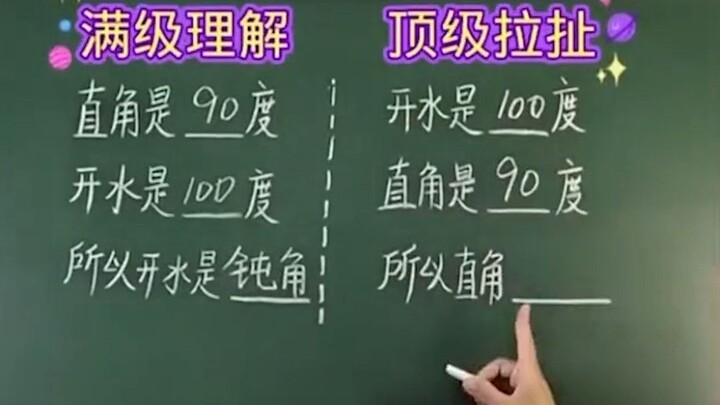 满级理解
直角是 90 度
开水是 100 度
所以开水是 钝角
顶级拉扯
开水是 100 度
直角是 90 度
所以直角